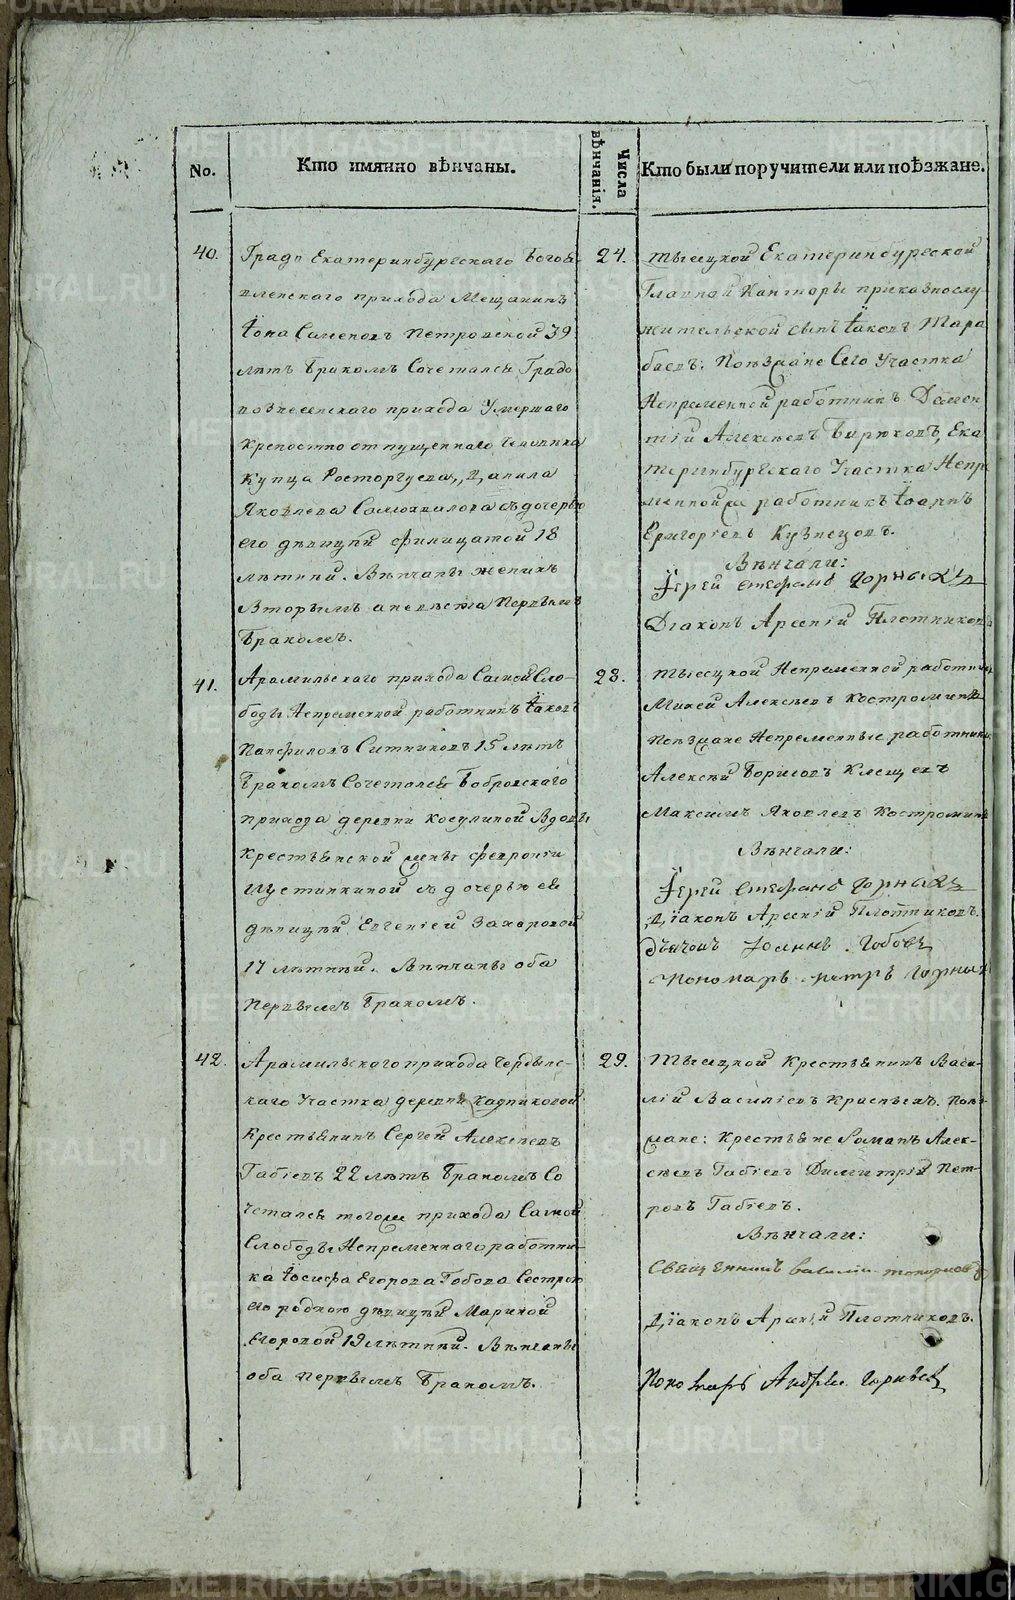 No.
Кто имянно вѣнчаны.
Числа вѣнчанія.
Кто были поручители или поѣзжане.
40.
Града Екатеринбургскаго Богоя
вленскаго прихода Мещанинъ
Іона Семеновъ Петровской 39
лѣтъ бракомъ Сочетался Градо
вознесенскаго прихода Умершаго
крепостно отпущеннаго человѣка
купца Расторгуева, Данила
Яковлева Самохвалова съ дочерью
его дѣвицѣй Филицатой 18
лѣтнѣй. Вѣнчаны женихъ
Вторымъ а невѣста Первымъ
Бракомъ.
24.
Тысяцкой Екатеринбургской
Главной Канторы приказнослу
жительской сынъ Іаковъ Тара
баевъ: Поѣзжане Сего Участка
Непременной работникъ Домен
тій Алексѣевъ Бирюковъ, Ека
теринбургскаго Участка Непре
менной работникъ Іоаннъ
Григорьевъ Кузнецовъ.
Вѣнчали:
Іерей Стефанъ Горныхъ
Діаконъ Арсеній Плотниковъ
41.
Арамильскаго прихода Самой Сло-
боды Непременной работникъ Іаковъ
Панфиловъ Ситниковъ 15 лѣтъ
Бракомъ Сочетался Бобровскаго
прихода деревни Косулиной Вдовы
Крестьянской жены Февроніи
Шустинкиной съ дочерью ея
дѣвицѣй Евгеніей Захаровой
17 лѣтнѣй. Вѣнчаны оба
Первымъ Бракомъ.
28.
Тысяцкой Непременной работникъ
Микей Алексѣевъ Костроминъ
Поѣзжане Непременные работники
Алексѣй Борисовъ Клещевъ
Максимъ Яковлевъ Костроминъ
Вѣнчали:
Іерей Стефанъ Горныхъ
Діаконъ Арсеній Плотниковъ.
Дьячокъ Іоаннъ Гобовъ
Пономарь Петръ Горныхъ
42.
Арамильскаго прихода
каго Участка деревни Кадниковой
Крестьянинъ Сергей Алексѣевъ
Габіевъ 22 лѣтъ Бракомъ Со
четался тогоже прихода Самой
Слободы Непременнаго работни-
ка Іосифа Егорова Гобова Сестрою
его родною дѣвицѣй Мариной
Егоровой 19 лѣтнѣй. Вѣнчаны
оба первымъ Бракомъ.
29.
Тысяцкой Крестьянинъ Васи-
лій Василіевъ Поѣз
жане: Крестьяне Романъ Алек-
сѣевъ Габіевъ Димитрій Пет-
ровъ Габіевъ.
Вѣнчали:
Священникъ Василій Топорковъ
Діаконъ Арсеній Плотниковъ.
Пономарь Андрей Горныхъ
METRIKI.GASO-URAL.RU